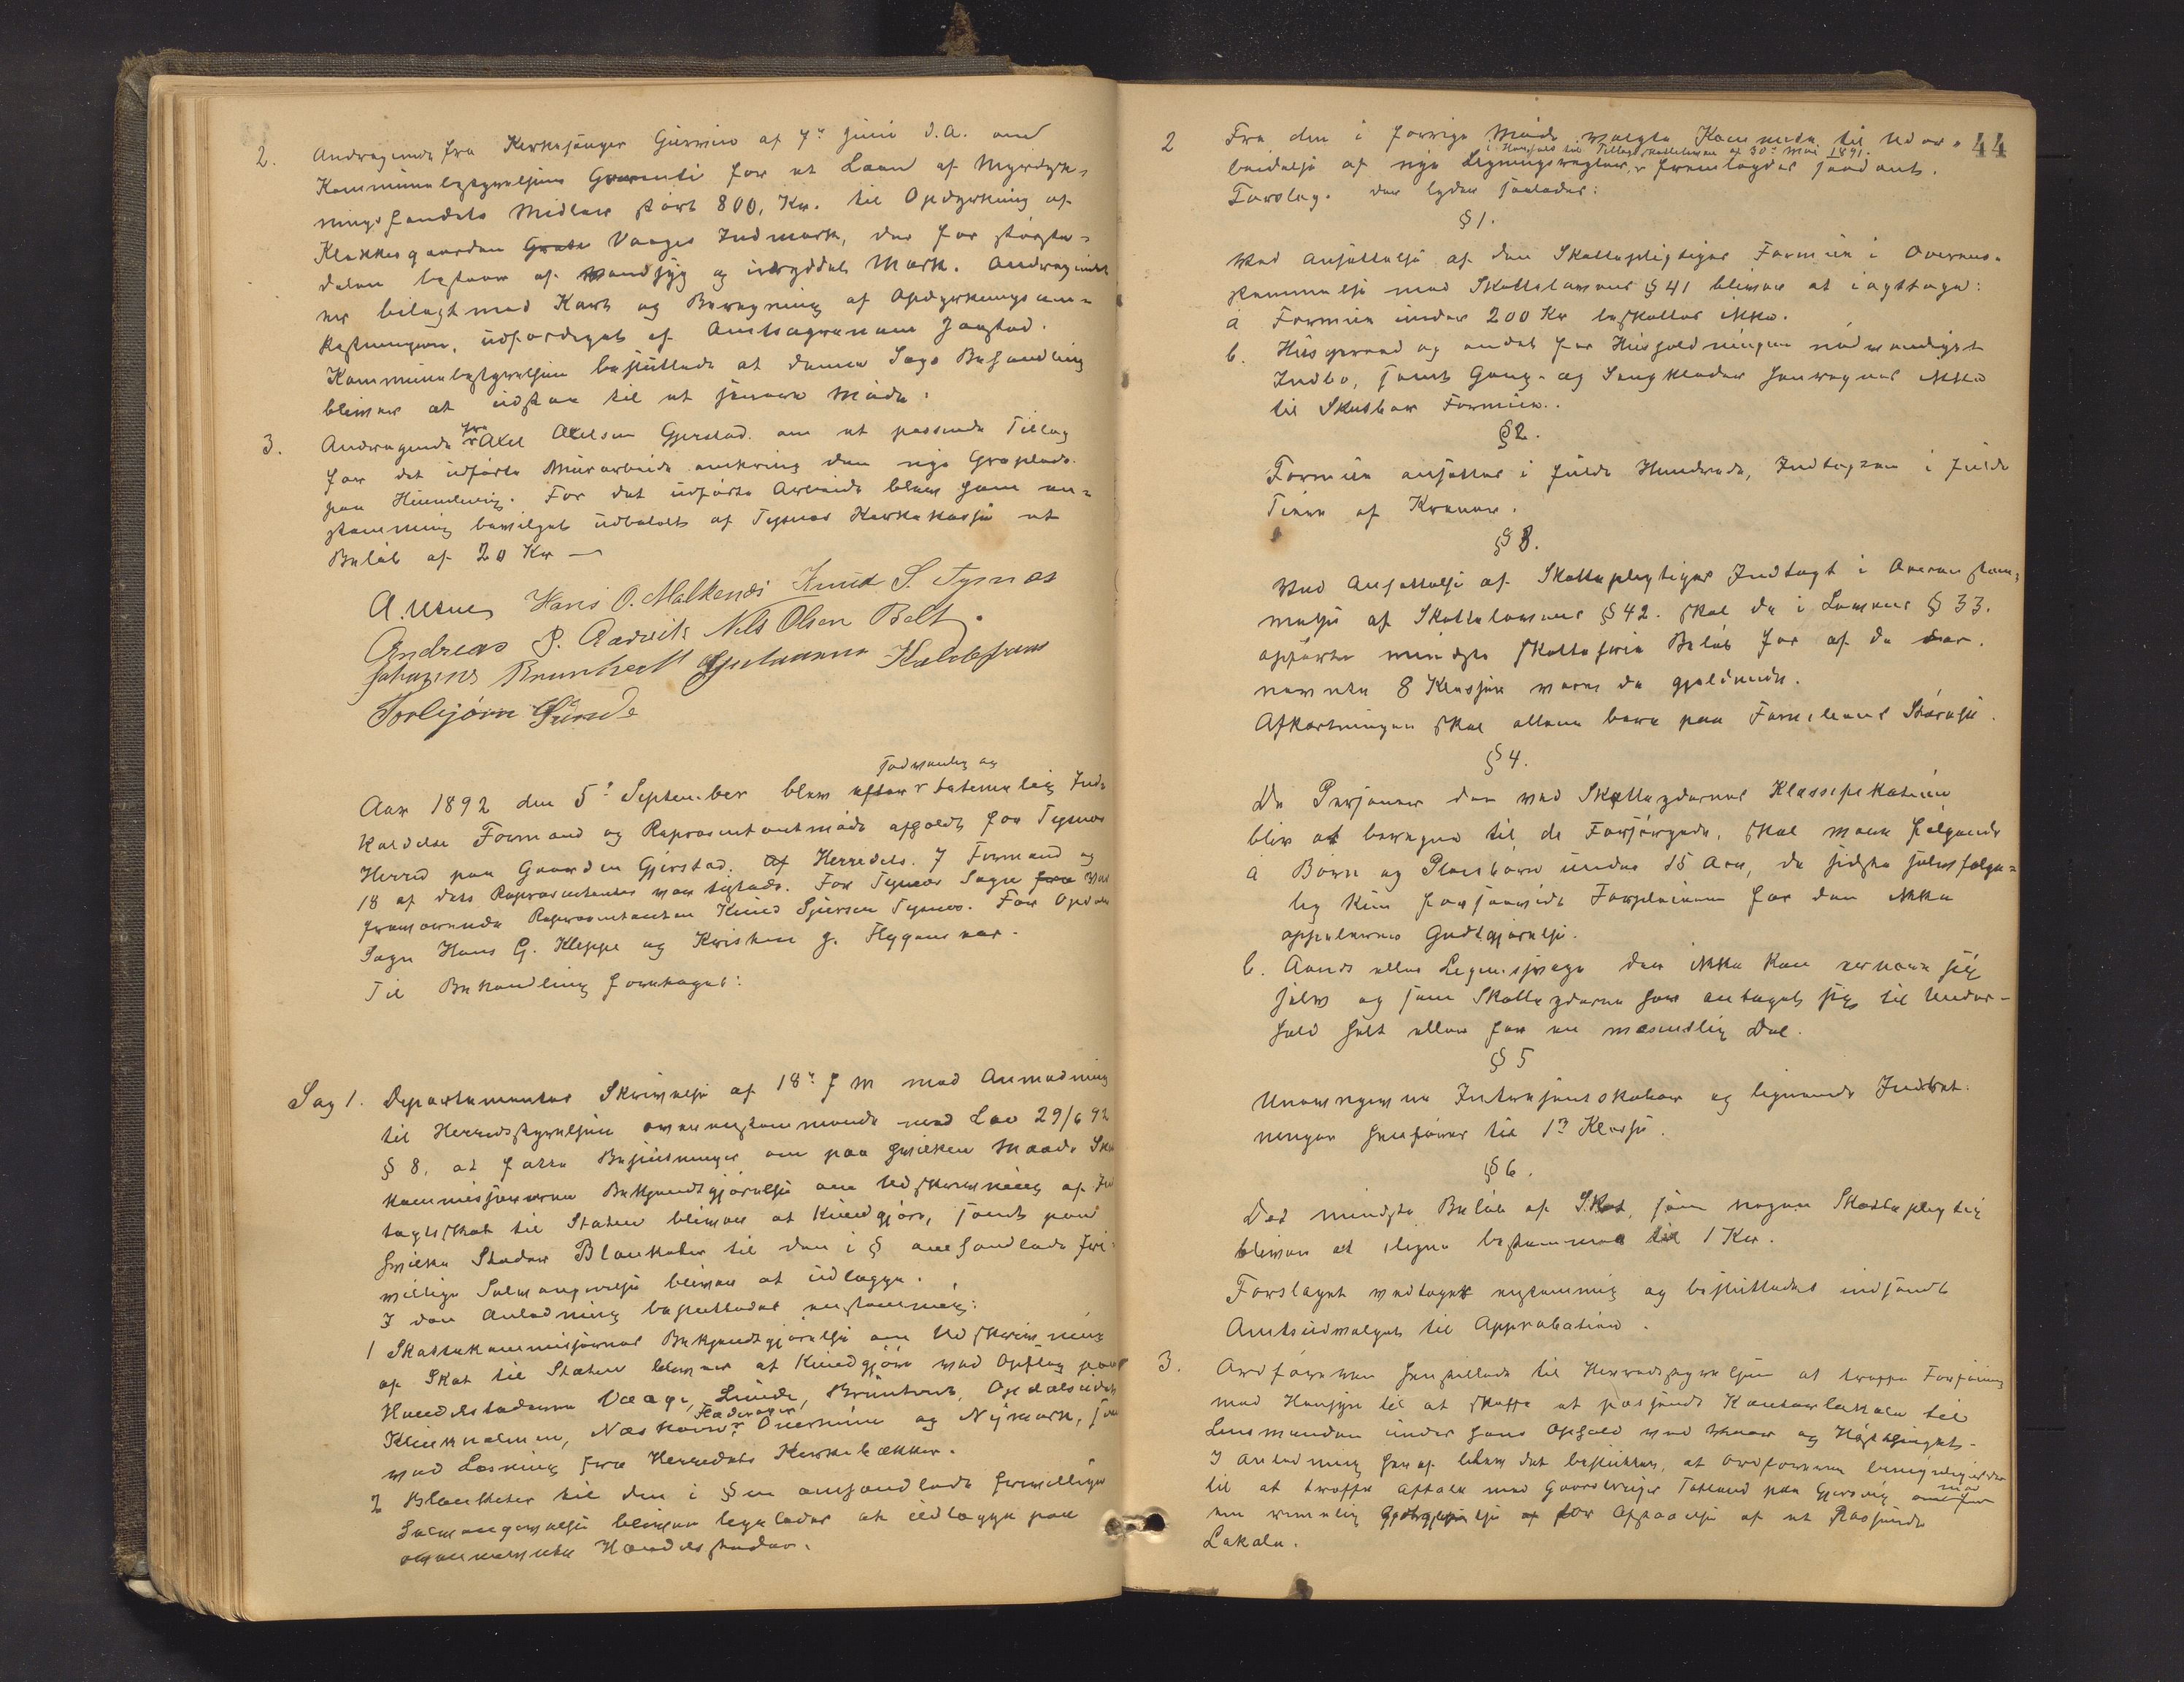 2. Andragende fra Kirkesanger Giersvin af 7de Juni d.A. om
Kommunebestyrelsens Garanti for et Laan af Myrdyrk-
ningsfondets Midler stort 800, Kr. til Opdyrkning af
Klokkergaarden Vaages Indmark, der for største-
delen bestaar af vandsyg og uryddet Mark. Andragendet
er bilagt med Kart og Beregning af Opdyrkningsom-
kostningerne, udfærdiget af Amtsagronom Jaastad.
Kommunebestyrelsen besluttede at denne Sags Behandling
bliver at udstaa til et senere Møde.
3. Andragende fra Axel Axelsen Gjerstad om et passende Tillæg
for det udførte Murarbeide omkring den nye Gravplads
paa Huundvig. For det udførte Arbeide blev som en-
stemmig bevilget udbetalt af Tysnes Kirkekasse et
Beløb af 20 Kr —
A. Uenes Hans O. Malkenes Knud S. Tysnes
Andreas P. Aadvik Nels Olsen Belt
Johannes Bruntveit Gjulmannn Kaldefoss
Torbjørn Sunde
sædvanlig og
Aar 1892 den 5te September blev efter lovmelig Ind-
kaldelse Formand og Repræsentantmøde afholdt for Tysnes
Herred paa Gaarden Gjerstad. Af Herredets 7 Formænd og
18 af dets Repræsentanter var tilstede. For Tysnes Sogn var
fraværende Repræsentanten Knud Sjursen Tysnes. For Opdals
Sogn Hans G. Kleppe og Kristen J. Flygansvær.
Til Behandling foretoges:
Sag 1. Departementes Skrivelse af 18de f M med Anmodning
til Herredsstyrelsen overensstemmende med Lov 29/6 92
§ 8, at fatte Beslutninger om paa hvilken Maade Skatte
kommissionernes Bekjendtgjørelse om Udskrivning af Ind
tægtsskat til Staten bliver at kundgjøre, samt paa
hvilke Steder Blanketer til den i § omhandlede fri-
villige Selvangivelse bliver at udlægge.
I den Anledning besluttedes enstemmig:
1 Skattekommisjonens Bekjendtgjørelse om Udskrivning
af Skat til Staten bliver at kundgjøre ved Opslag paa
Handelsstederne Vaage, Lunde, Bruntveit, Opdalseidet
Fladvager,
Klinkholmen, Næshavn, Onernuven og Nymark, samt
ved Læsning fra Herredets Kirkebakker.
2 Blanketer til den i §en omhandlede frivillige
Selvangivelse bliver ligeledes at udlægge paa
ovennævnte Handelssteder.
44
2 Fra den i forrige Møde valgte Komite til Udar-
i Henhold til Tillægsskatteloven af 30te Mai 1891.
beidelse af nye Ligningsregler, fremlagdes saadant
Forslag. der lyder saaledes:
§ 1.
Ved Ansættelse af den Skattepligtiges Formue i Overens-
stemmelse med Skattelovens § 41 bliver at iagttage:
a Formue under 200 Kr beskattes ikke.
b. Husgeraad og andet for Husholdningen nødvendigst
Indbo, samt Gang- og Sengklæder henregnes ikke
til Skatbar Formue.
§2.
Formue ansættes i fulde Hundrede, Indtægten i fulde
Tiere af Kroner.
§ 3.
Ved Ansættelse af Skattepligtiges Indtægt i Overensstem-
melse af Skattelovens § 42. skal de i Lovens § 33.
opførte mindste skattefrie Beløb for af de der
nævnte 8 Klasser være de gjeldende.
Afkortningen skal allene bero paa Familiens Størrelse.
§ 4.
De Personer der ved Skatteydernes Klassifikation
bliv at beregne til de Forsørgede, skal være følgende
a Børn og Pleiebørn under 15 Aar, de sidste selvfølge-
lig kun forsaavidt Forpleieren for dem ikke
oppebærer Godtgjørelse.
b. Aands eller Legemssvage der ikke kan ernære sig
selv og som Skatteyderne har antaget sig til Under-
hold helt eller for en væsentlig Del.
§ 5
Unævngivne Interessentskaber og lignende Indret-
ninger henføres til 1ste Klasse.
§ 6.
Det mindste Beløb af Skat, som nogen Skattepligtig
bliver at iligne bestemmes til 1 Kr.
Forslaget vedtaget enstemmig og besluttedes indsendt
Amtsudvalget til Approbation.
3. Ordføreren henstillede til Herredsstyrelsen at træffe Forføining
med Hensyn til at skaffe et passende Kontorlokale til
Lensmanden under hans Ophold ved Vaar og Høstthinget.
I Anledning heraf blev det besluttet, at Ordføreren bemyndigedes
til at træffe Aftale med Gaardbruger Tøkland paa Gjersvig mod
en rimelig Godtgjørelse for Afstaaelse af et Passende
Lokale.